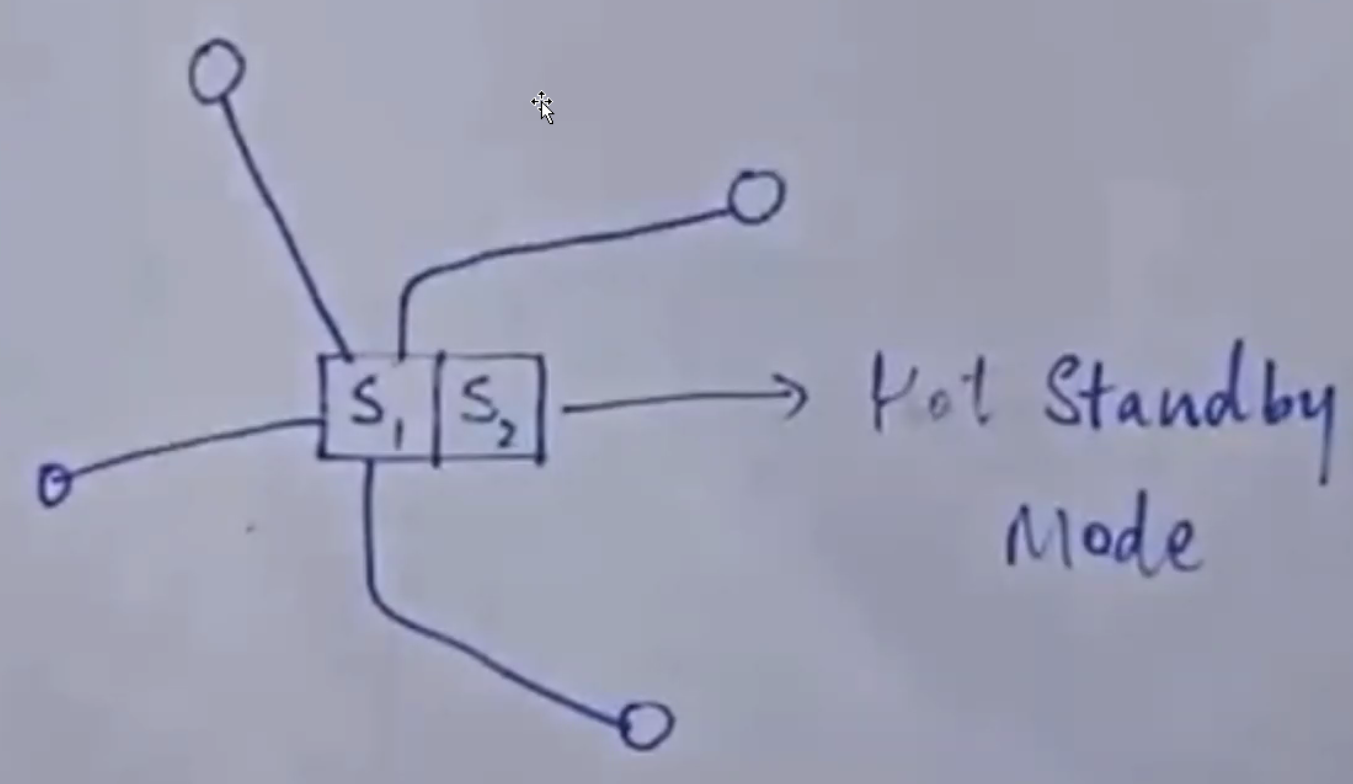 S₁ S₂
Hot Standby
Mode